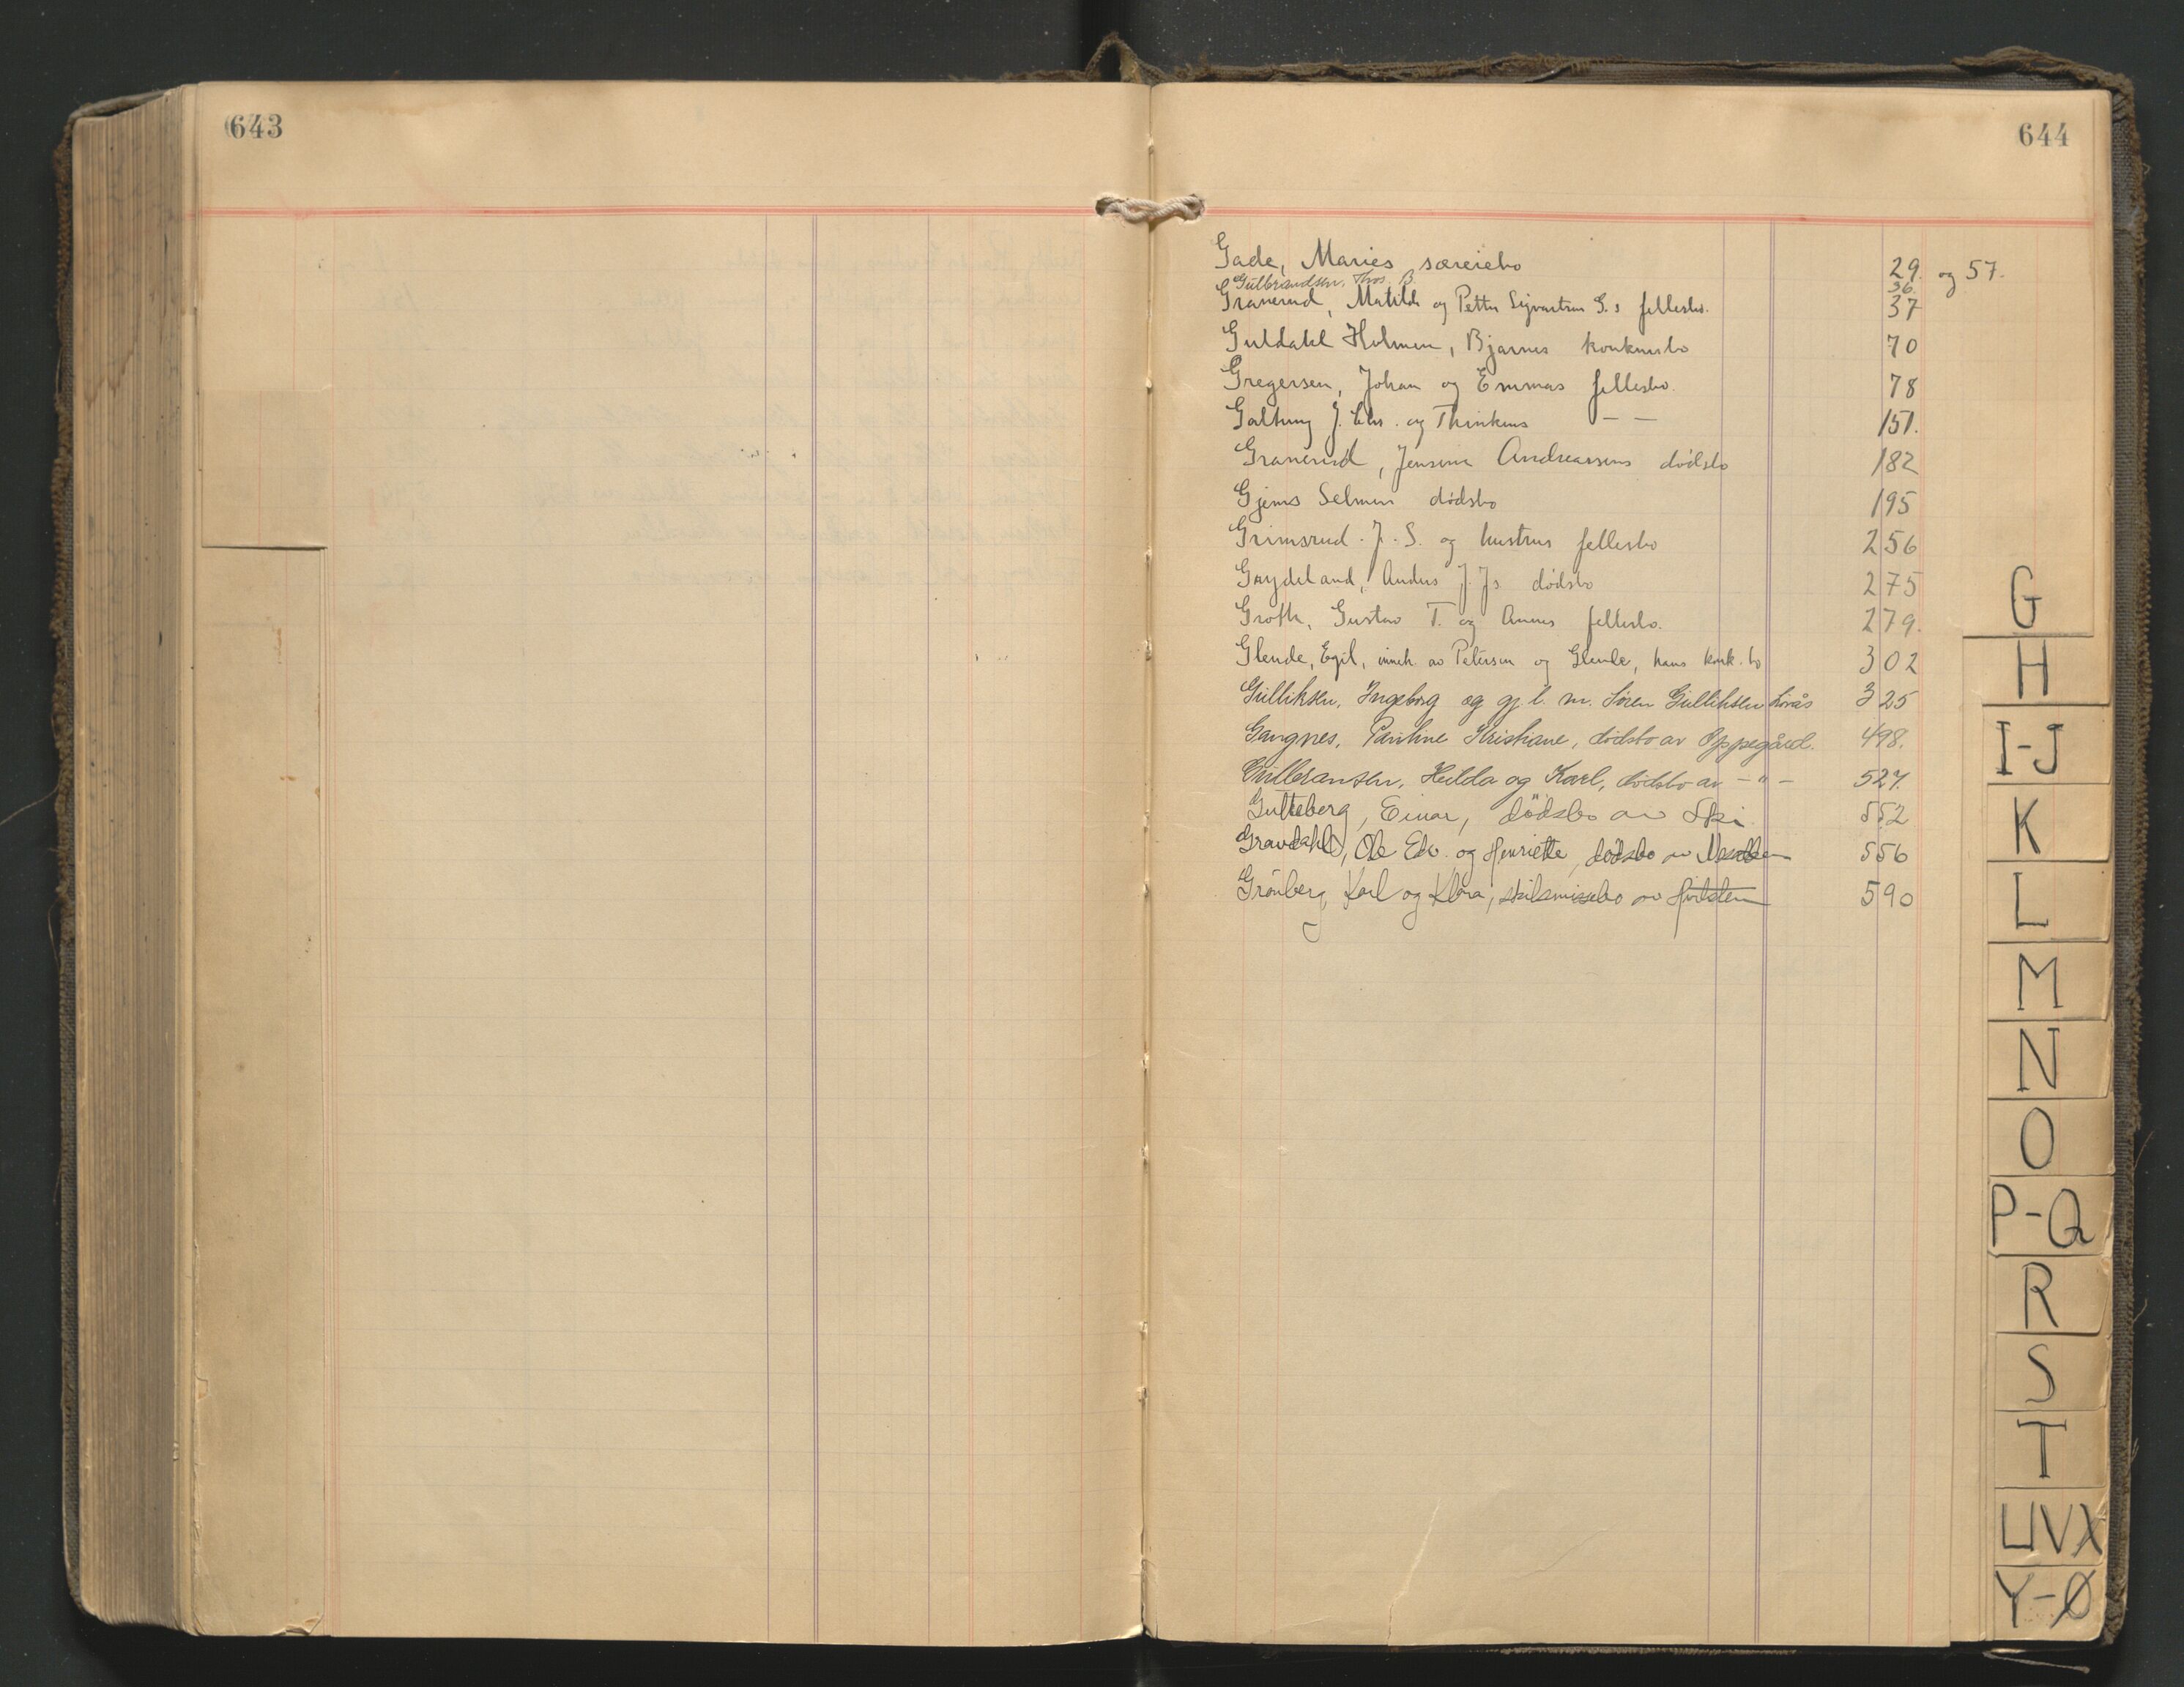 643
644
Gade, Maries særeiebo 29. og 57.
Gulbrandsen, Thos. B. 36.
Granerud, Matilde og Petter Sigvartsen G.s fellesbo. 37
Guldahl Holmen, Bjarnes konkursbo 70
Gregersen, Johan og Emmas fellesbo. 78
Galtung J. Chr. og Thinkens — — 151.
Granerud, Jensine Andreassens dødsbo 182
Gjems Selmer dødsbo 195
Grimsrud. J. S. og hustrus fellesbo 256
Grydeland, Anders J. Js dødsbo 275
Groth, Gustav T. og Annes fellesbo. 279.
Glende, Egil, inneh. av Petersen og Glende, hans konk. bo 302
Gulliksen, Ingeborg og gj. l. m. Søren Gulliksen 325
Gangnes, Pauline Kristiane, dødsbo av Oppegård. 498.
Gulbransen, Hilda og Karl, dødsbo av - " - 527.
Gutteberg, Einar, dødsbo av Ski 552
Gravdahl, Ole Edv. og Henriette, dødsbo av 556
Grønberg, Karl og Klara, skilsmissebo av 590
G
H
I-J
K
L
M
N
O
P-Q
R
S
T
UVX
Y-Ø